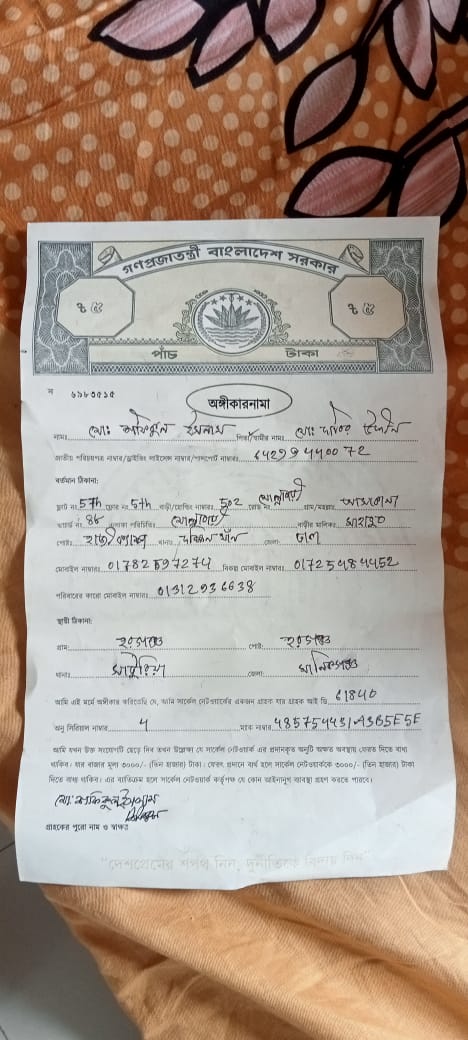 গণপ্রজাতন্ত্রী বাংলাদেশ সরকার
৳ ৫ ৳ ৫
পাঁচ টাকা
অঙ্গীকারনামা
নামঃ মোঃ রফিকুল ইসলাম পিতা/স্বামীর নামঃ মোঃ উদ্দীন
জাতীয় পরিচয়পত্র নাম্বার/ড্রাইভিং লাইসেন্স নাম্বার/পাসপোর্ট নাম্বারঃ
বর্তমান ঠিকানা:
ফ্লাট নং 5th ফ্লোর নং 5th বাড়ী/হোল্ডিং নাম্বারঃ 502 রোড নং গ্রাম/মহল্লাঃ
ওয়ার্ড নং এলাকা পরিচিতিঃ মোল্লাবাড়ী বাড়ীর মালিকঃ
পোষ্টঃ থানাঃ জেলাঃ ঢাকা
মোবাইল নাম্বারঃ বিকল্প মোবাইল নাম্বারঃ
পরিবারের কারো মোবাইল নাম্বারঃ 01312936638
স্থায়ী ঠিকানা:
গ্রামঃ হরগজ পোষ্টঃ হরগজ
থানাঃ সাটুরিয়া জেলাঃ মানিকগঞ্জ
আমি এই মর্মে অঙ্গীকার করিতেছি যে, আমি সার্কেল নেটওয়ার্কের একজন গ্রাহক যার গ্রাহক আই ডি 61840
অনু সিরিয়াল নাম্বার 4 ম্যাক নাম্বার
আমি যখন উক্ত সংযোগটি ছেড়ে দিব তখন উল্লেখ্য যে সার্কেল নেটওয়ার্ক এর প্রদানকৃত অনুটি অক্ষত অবস্থায় ফেরত দিতে বাধ্য
থাকিব। যার বাজার মূল্য ৩০০০/- (তিন হাজার) টাকা। ফেরৎ প্রদানে ব্যর্থ হলে সার্কেল নেটওয়ার্ককে ৩০০০/- (তিন হাজার) টাকা
দিতে বাধ্য থাকিব। এর ব্যতিক্রম হলে সার্কেল নেটওয়ার্ক কর্তৃপক্ষ যে কোন আইনানুগ ব্যবস্থা গ্রহণ করতে পারবে।
মোঃ রফিকুল ইসলাম
গ্রাহকের পুরো নাম ও স্বাক্ষর
"দেশপ্রেমের শপথ নিন, দুর্নীতিকে বিদায় দিন"